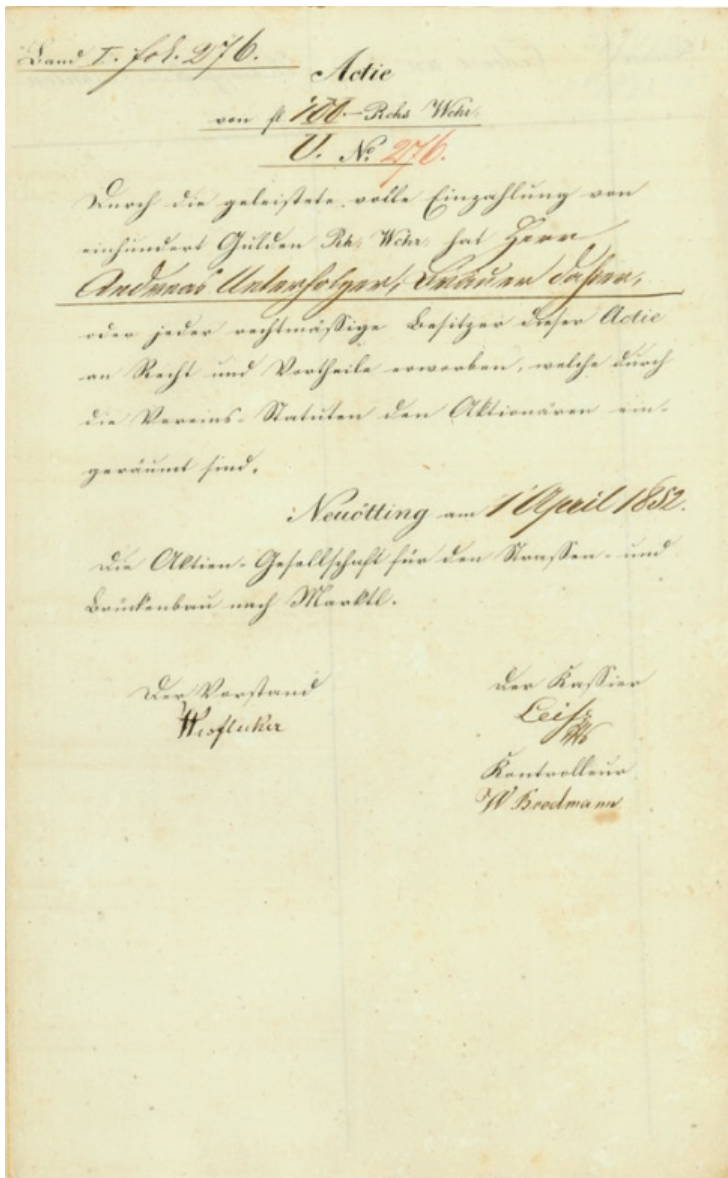 Band I. fol. 276.
Actie
von fl 100.– Rchs Wehr.
U. No. 276.
Durch die geleistete volle Einzahlung von
einhundert Gulden Rh. Wehr. hat Herr
Andreas Unterholzer, Bräuer dahier,
oder jeder rechtmässige Besitzer dieser Actie
an Recht und Vortheile erworben, welche durch
die Vereins-Statuten den Aktionären ein-
geräumt sind.
Neuötting am 1 April 1852.
Die Aktien-Gesellschaft für den Strassen- und
Brückenbau nach Marktl.
Der Vorstand
Der Kassier
Kontrolleur